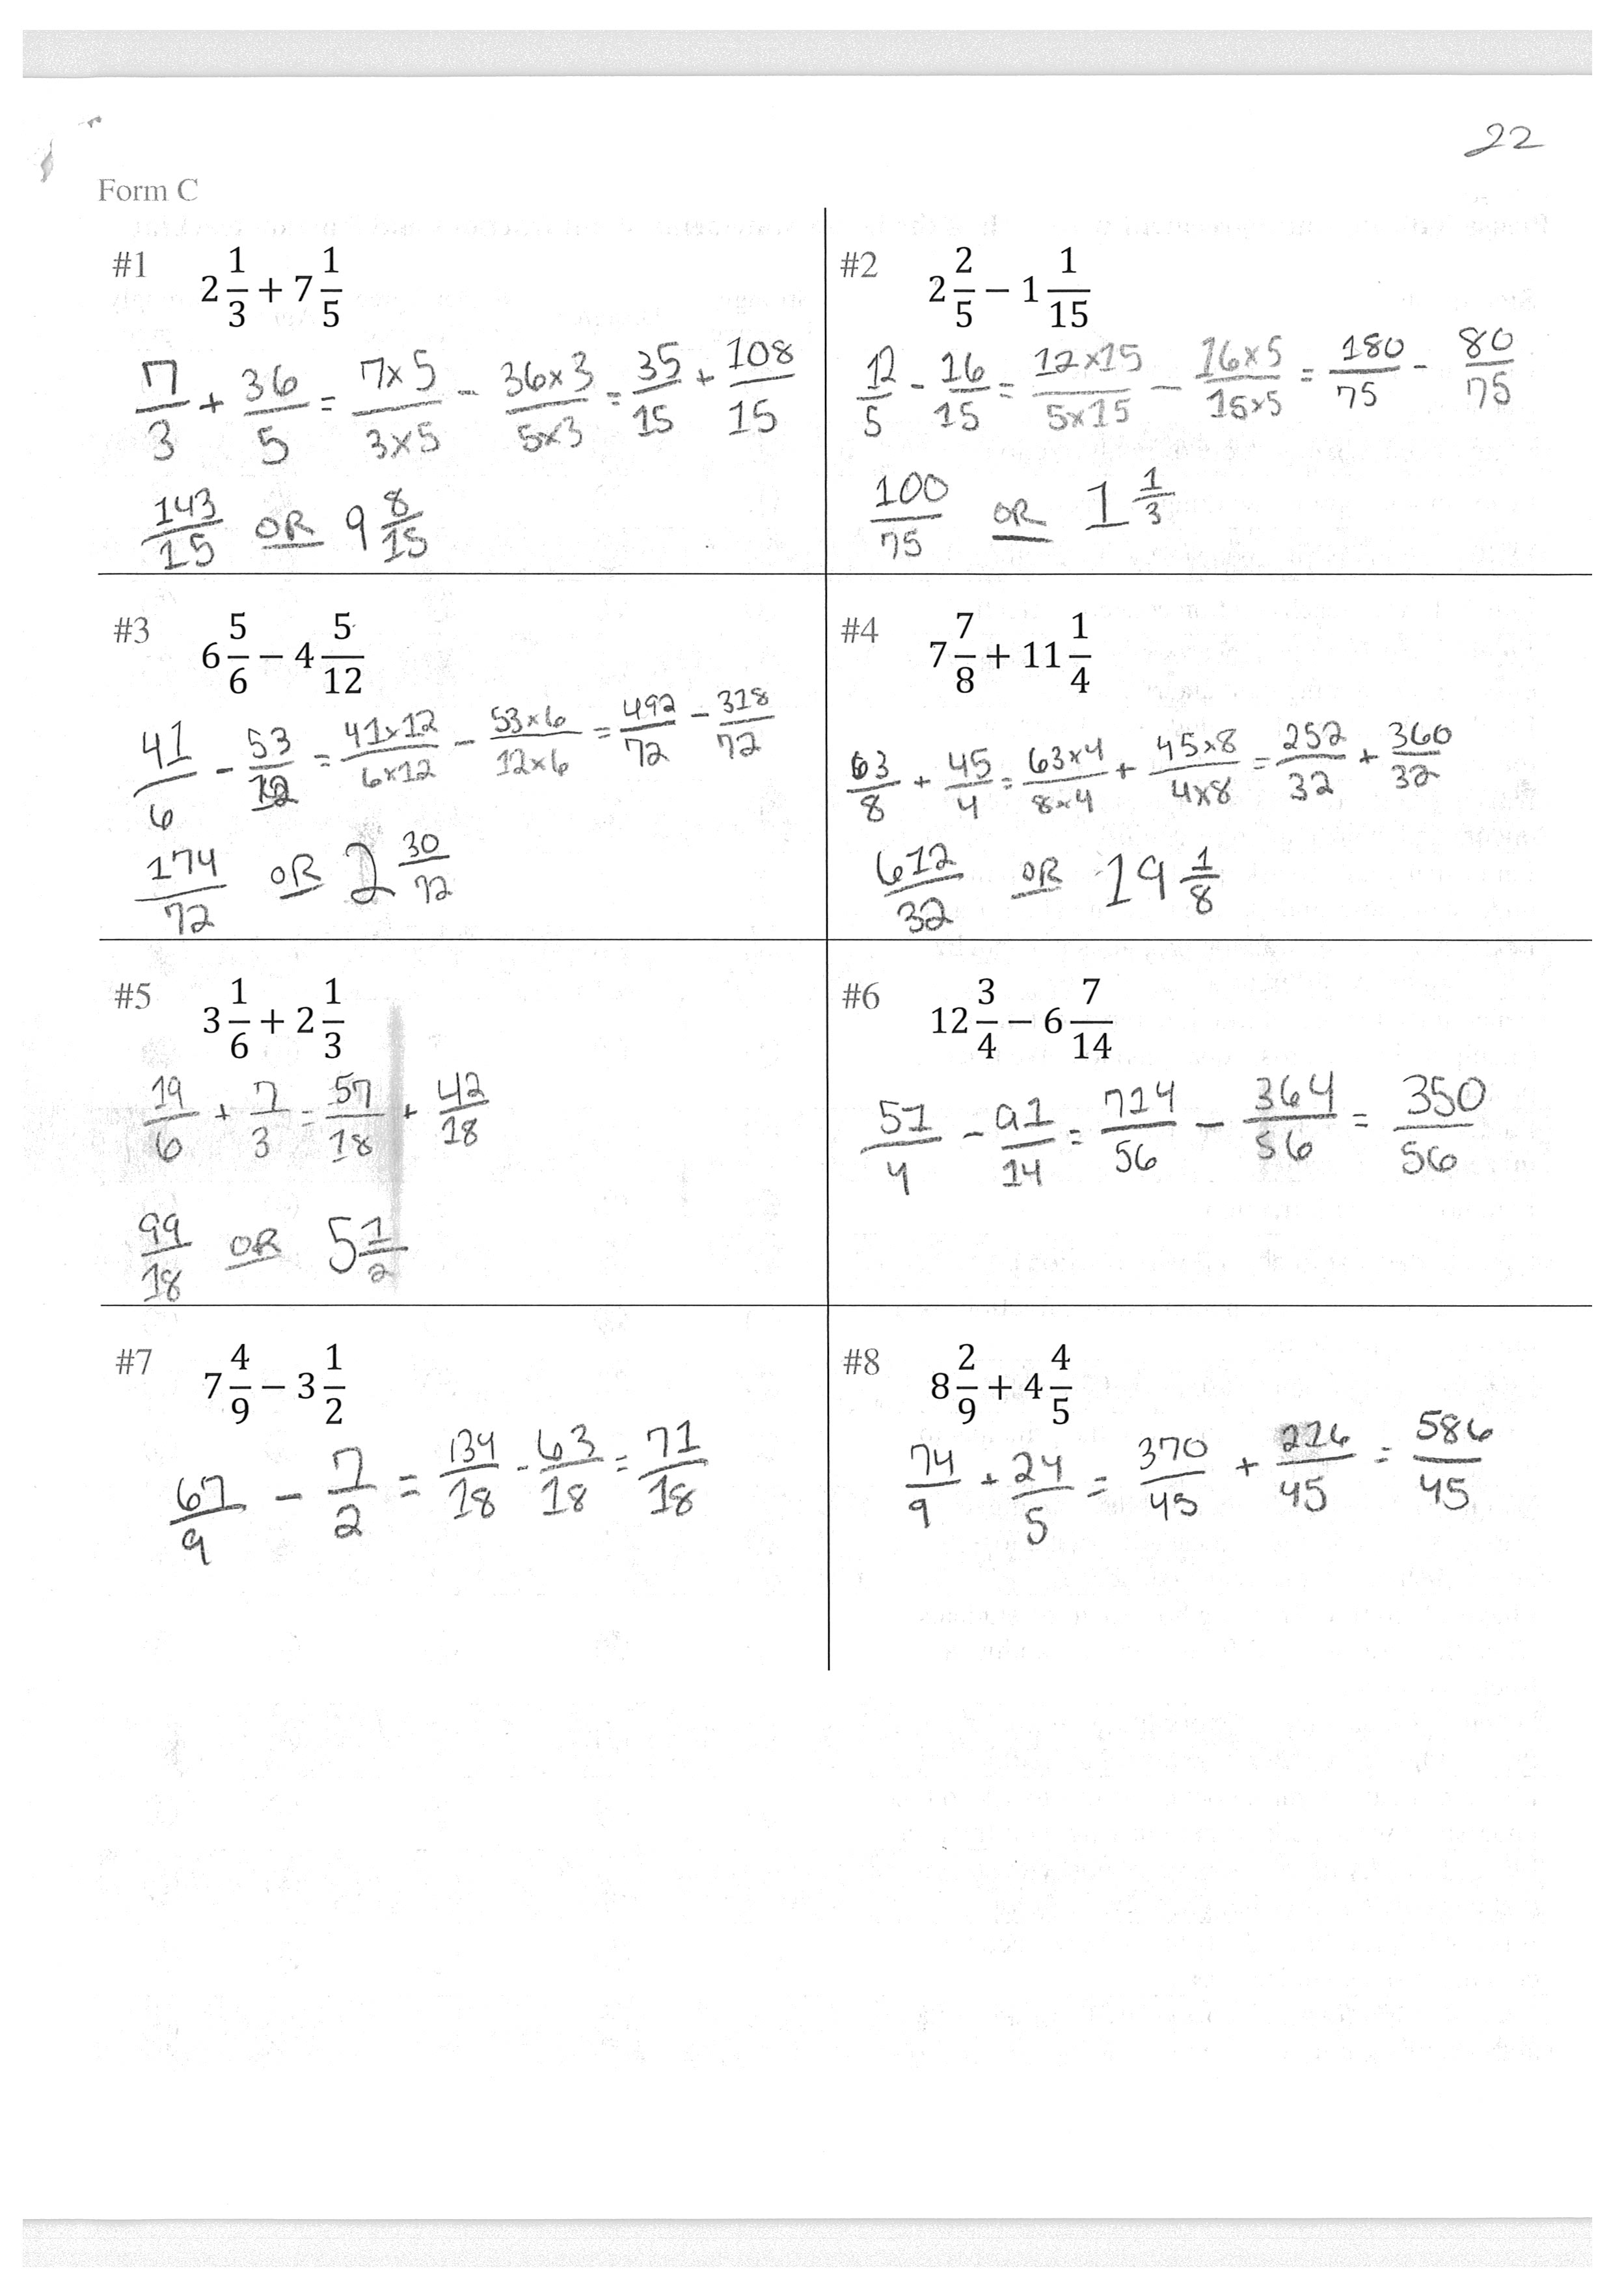 22
Form C
#1 2 1/3 + 7 1/5
7/3 + 36/5 = 7x5/3x5 - 36x3/5x3 = 35/15 + 108/15
143/15 OR 9 8/15
#2 2 2/5 − 1 1/15
12/5 - 16/15 = 12x15/5x15 - 16x5/15x5 = 180/75 - 80/75
100/75 OR 1 1/3
#3 6 5/6 − 4 5/12
41/6 - 53/12 = 41x12/6x12 - 53x6/12x6 = 492/72 - 318/72
174/72 OR 2 30/72
#4 7 7/8 + 11 1/4
63/8 + 45/4 = 63x4/8x4 + 45x8/4x8 = 252/32 + 360/32
612/32 OR 19 1/8
#5 3 1/6 + 2 1/3
19/6 + 7/3 = 57/18 + 42/18
99/18 OR 5 1/2
#6 12 3/4 − 6 7/14
51/4 - 91/14 = 714/56 - 364/56 = 350/56
#7 7 4/9 − 3 1/2
67/9 - 7/2 = 134/18 - 63/18 = 71/18
#8 8 2/9 + 4 4/5
74/9 + 24/5 = 370/45 + 216/45 = 586/45